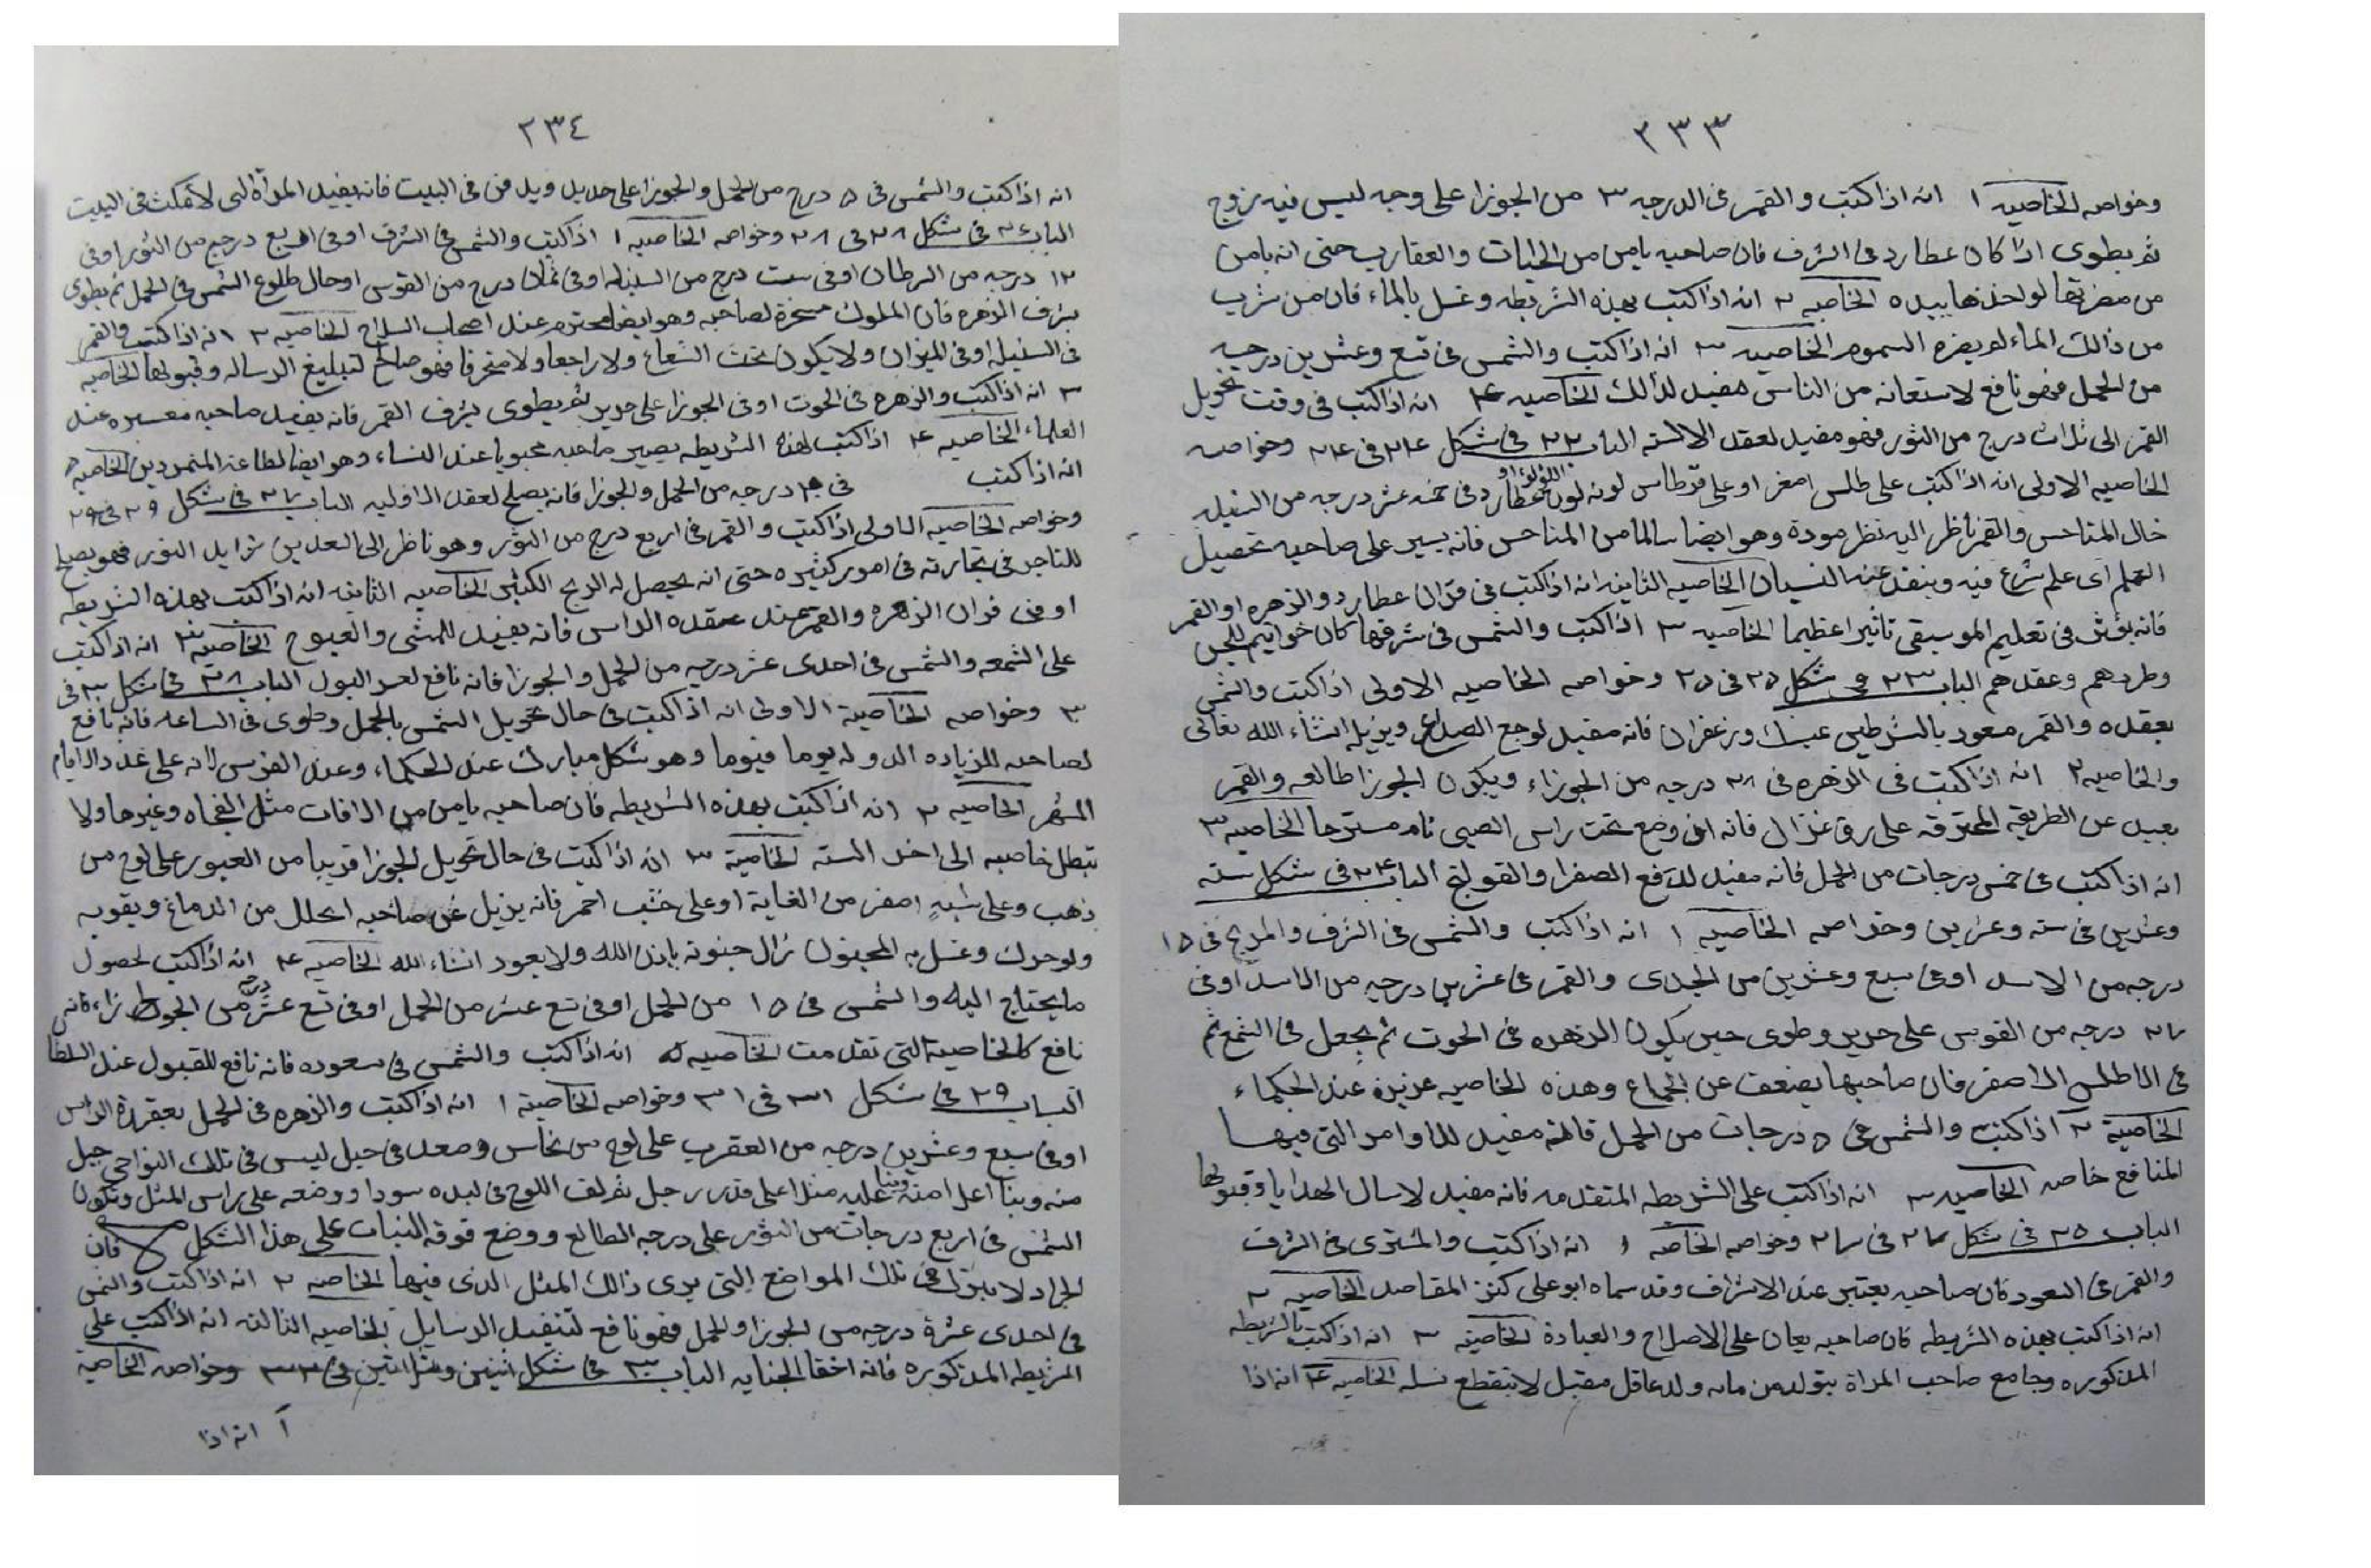 ٢٣٣
وخواصه الخاصيه ١ انه اذا كتب والقمر فى الدرجه ٣ من الجوزا على وجه ليس فيه زوج
ثم يطوى اذا كان عطارد فى الشرف فان صاحبه يامن من الحيات والعقارب حتى انه يامن
من مضرتها لو اخذها بيده الخاصيه ٢ انه اذا كتب بهذه الشريطه وغسل بالماء فان من شرب
من ذالك الماء لم يضره السموم الخاصيه ٣ انه اذا كتب والشمس فى تسع وعشرين درجه
من الحمل فهو نافع لاستعانه من الناس مفيد لذالك الخاصيه ۴ انه اذا كتب فى وقت تحويل
القمر الى ثلاث درج من الثور فهو مفيد لعقد الالسنه الباب ٢٢ فى شكل ٢۴ فى ٢۴ وخواصه
الخاصيه الاولى انه اذا كتب على طلس اصفر او على قرطاس لونه لون اللؤلؤ او عطارد فى خمسه عشر درجه من السنبله
خال المناحس والقمر ناظر اليه نظر مودة وهو ايضا سالما من المناحس فانه يسير على صاحبه تحصيل
العلم اى علم شرع فيه وينفد عنه النسيان الخاصيه الثانيه انه اذا كتب فى قران عطارد والزهره او القمر
فانه يؤثر فى تعليم الموسيقى تاثيرا عظيما الخاصيه ٣ اذا كتب والشمس فى شرفها كان خواتيم للجن
وطردهم وعقدهم الباب ٢٣ فى شكل ٢۵ فى ٢۵ وخواصه الخاصيه الاولى اذا كتب والشمس
بعقده والقمر مسعود بالشرطين بمسك وزعفران فانه مفيد لوجع الصداع ويزيله انشاء الله تعالى
والخاصيه ٢ انه اذا كتبت فى الزهره فى ٢٨ درجه من الجوزاء ويكون الجوزا طالعه والقمر
بعيد عن الطريقه المحترقه على رق غزال فانه اذا وضع تحت راس الصبى نام مستريحا الخاصيه ٣
انه اذا كتب فى خمس درجات من الحمل فانه مفيد لدفع الصفرا والقولنج الباب ٢۴ فى شكل سته
وعشرين فى سته وعشرين وخواصه الخاصيه ١ انه اذا كتب والشمس فى الشرف والمريخ فى ١۵
درجه من الاسد او فى سبع وعشرين من الجدى والقمر فى عشرين درجه من الاسد او فى
٢٧ درجه من القوس على حرير وطوى حين يكون الزهره فى الحوت ثم يجعل فى الشمع ثم
فى الاطلس الاصفر فان صاحبها يضعف عن الجماع وهذه الخاصيه عزيزة عند الحكماء
الخاصية ٢ اذا كتب والشمس فى ۵ درجات من الحمل فانه مفيد للاوامر التى فيها
المنافع خاصه الخاصيه ٣ انه اذا كتب على الشريطه المتقدمه فانه مفيد لارسال الهدايا وقبولها
الباب ٢۵ فى شكل ٢٧ فى ٢٧ وخواصه الخاصه ١ انه اذا كتب والمشترى فى الشرف
والقمر فى السعود فان صاحبه يعتبر عند الاشراف وقد سماه ابو على كنز المقاصد الخاصيه ٢
انه اذا كتب بهذه الشريطه فان صاحبه يعان على الاصلاح والعبادة الخاصيه ٣ انه اذا كتب بالشريطه
المذكوره وجامع صاحب المراة يتولد من مائه ولد عاقل مقبل لا ينقطع نسله الخاصيه ۴ انه اذا
٢٣٤
انه اذا كتب والشمس فى ۵ درج من الحمل والجوزا على حديد ويدفن فى البيت فانه يفيد المراة التى لا تمكث فى البيت
الباب ٢٦ فى شكل ٢٨ فى ٢٨ وخواصه الخاصيه ١ اذا كتب والشمس فى الشرف او فى اربع درج من الثور او فى
١٢ درجه من السرطان او فى ست درج من السنبله او فى ثمان درج من القوس او حال طلوع الشمس فى الحمل ثم يطوى
بشرف الزهره فان الملوك مسخرة لصاحبه وهو ايضا محترم عند اصحاب السلاح الخاصيه ٢ انه اذا كتبت والقمر
فى السنبله او فى الميزان ولا يكون تحت الشعاع ولا راجعا ولا محترقا فهو صالح لتبليغ الرساله وقبولها الخاصيه
٣ انه اذا كتب والزهره فى الحوت او فى الجوزا على حرير ثم يطوى بشرف القمر فانه يفيد صاحبه معسره عند
العلماء الخاصيه ۴ اذا كتب لهذه الشريطه يصير صاحبه محبوبا عند النساء وهو ايضا لطاعة المتمردين الخاصيه ۵
انه اذا كتب فى درجه من الحمل والجوزا فانه يصلح لعقد الافليه الباب ٢٧ فى شكل ٢٩ فى ٢٩
وخواصه الخاصيه الاولى اذا كتب والقمر فى اربع درج من الثور وهو ناظر الى السعدين زايد النور فهو يصلح
للتاجر فى تجارته فى امور كثيره حتى انه يحصل له الربح الكثير الخاصيه الثانيه انه اذا كتب بهذه الشريطه
او فى قران الزهره والقمر عند عقده الراس فانه يفيد للمشى والعبوح الخاصيه ٣ انه اذا كتب
على الشمعه والشمس فى احدى عشر درجه من الحمل والجوزا فانه نافع لعسر البول الباب ٢٨ فى شكل ٣٠ فى
٣٠ وخواصه الخاصية الاولى انه اذا كتبت فى حال تحويل الشمس بالحمل وطوى فى الساعه فانه نافع
لصاحبه للزياده الدوله يوما فيوما وهو شكل مبارك عند الحكماء وعند الفرس لانه على عدد الايام
الشهر الخاصيه ٢ انه اذا كتب بهذه الشريطه فان صاحبه يامن من الافات مثل الفجاه وغيرها ولا
تبطل خاصيه الى اخر السنه الخاصية ٣ انه اذا كتبت فى حال تحويل الجوزا قريبا من العبور على لوح من
ذهب وعلى شبه اصفر من الغاية او على خشب احمر فانه يزيل عن صاحبه الخلل من الدماغ ويقويه
ولو حرك وغسل به المجنون زال جنونه باذن الله ولا يعود انشاء الله الخاصيه ۴ انه اذا كتب لحصول
ما يحتاج اليه والشمس فى ١۵ من الحمل او فى تسع عشر من الحمل او فى تسع عشر درج من الجوزاء فانه
نافع كالخاصية التى تقدمت الخاصيه ۵ انه اذا كتب والشمس فى سعوده فانه نافع للقبول عند السلطا
الباب ٢٩ فى شكل ٣١ فى ٣١ وخواصه الخاصية ١ انه اذا كتب والزهره فى الحمل بعقدة الراس
او فى سبع وعشرين درجه من العقرب على لوح من نحاس وصعد فى جبل ليس فى تلك النواحى جبل
منه وبنا اعلا منه وبنا عليه مثلا على قدر رجل ثم لف اللوح فى لبده سودا ووضعه على راس المثل وتكون
الشمس فى اربع درجات من الثور على درجه الطالع ووضع فوقه النبات على هذا الشكل فان
الجراد لا ينزل فى تلك المواضع التى يرى ذالك المثل الذى فيها الخاصه ٢ انه اذا كتب والشمس
فى احدى عشرة درجه من الجوزا والحمل فهو نافع لتنفيذ الرسايل الخاصيه الثالثه انه اذا كتب على
الشريطه المذكوره فانه اخفا الجنايه الباب ٣٠ فى شكل اثنين وثلاثين فى ٣٢ وخواصه الخاصية
آ انه اذا